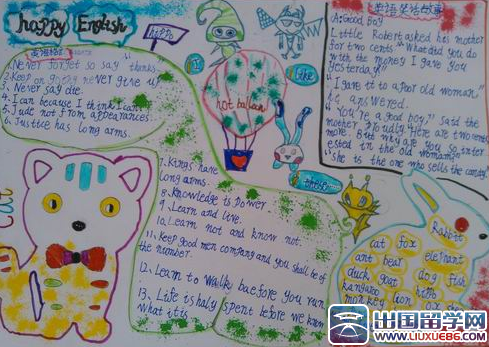 happy English
英语
1. Never forget so say "thanks"
2. Keep on going never give up
3. Never say die.
4. I can because I think I can
5. Jude not from appearances
6. Justice has long arms.
7. Kings have
long arms.
8. Knowledge is power
9. Learn and live.
10. Learn not and know not.
11. Keep good men company and you shall be of
the number.
12. Learn to walk baefore you run
13. Life is haly spent before we know
what it is
hot balloon
I
like
英语笑话故事
A: Good Boy
Little Robert asked his mother
for two cents. "What did you do
with the money I gave you
yesterday"
"I gave it to a poor old woman"
he answered.
"You're a good boy," Said the
mother proudly. "Here are two cents
more. But why are you so inter
ested in the old woman?"
"she is the one who sells the candy."
Cat
Rabbit
cat fox
elephant
ant bear
duck goat
dog fish
kangaroo lion
hippo
monkey
出国留学网
WWW.LIUXUE86.COM